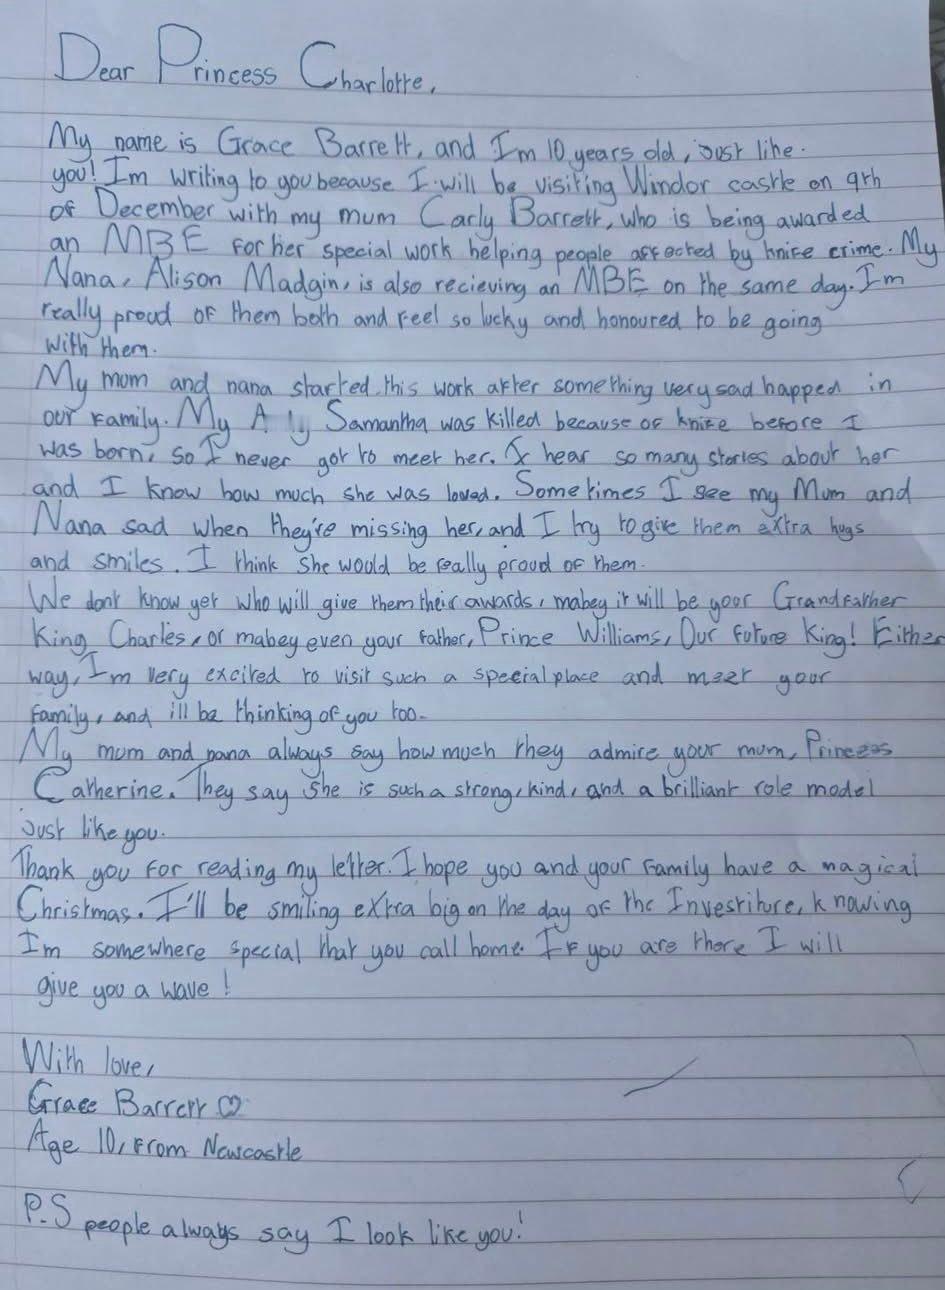 Dear Princess Charlotte,
My name is Grace Barrett, and I'm 10 years old, just like.
you! Im writing to you because I will be visiting Windor castle on 9th
of December with my mum Carly Barrett, who is being awarded
an MBE for her special work helping people affected by knife crime. My
Nana, Alison Madgin, is also recieving an MBE on the same day. I'm
really proud of them both and feel so lucky and honoured to be going
with them.
My mom and nana started this work after something very sad happed in
our family. My Samantha was killed because of knife before I
was born, so I never got to meet her. I hear so many stories about her
and I know how much she was loved. Sometimes I see my Mum and
Nana sad when they're missing her, and I try to give them extra hugs
and smiles. I think she would be really proud of them.
We dont know yet who will give them their awards, mabey it will be your Grandfather
King Charles, or mabey even your father, Prince Williams, Our future King! Either
way, I'm very excited to visit such a speecial place and meet your
family, and ill be thinking of you too.
My mum and nana always say how much they admire your mum, Princess
Catherine. They say she is such a strong, kind, and a brilliant role model
just like you.
Thank you for reading my letter. I hope you and your family have a magical
Christmas. I'll be smiling extra big on the day of the Investiture, knowing
I'm somewhere special that you call home. If you are there I will
give you a wave!
With love,
Grace Barrett ♡
Age 10, from Newcastle
P.S people always say I look like you!